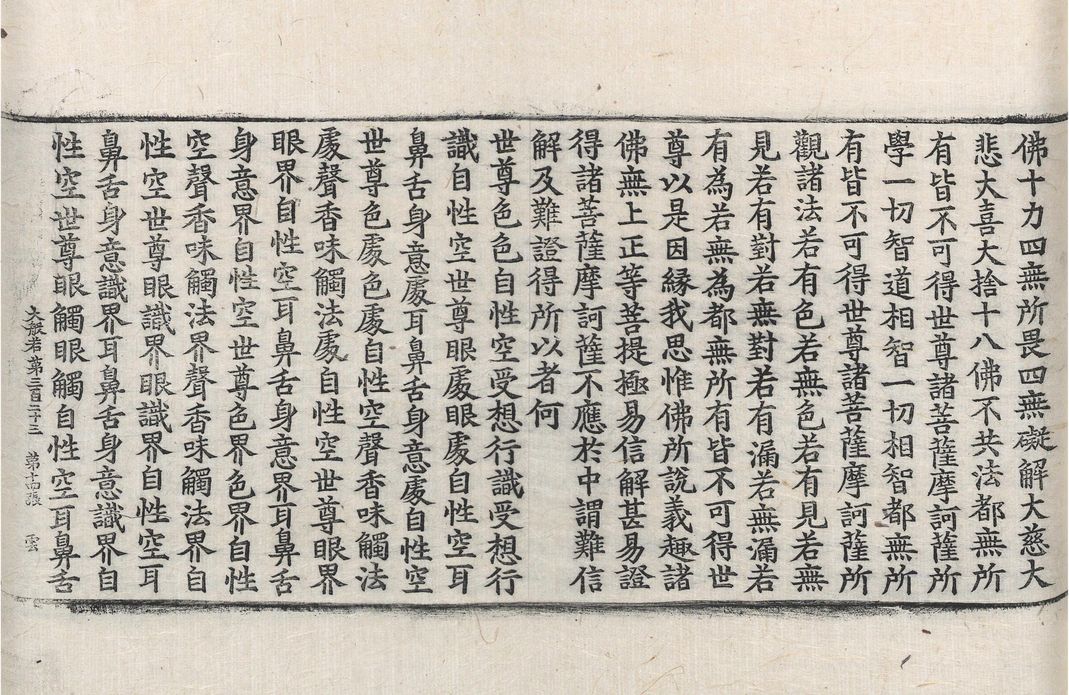 佛十力四無所畏四無礙解大慈大
悲大喜大捨十八佛不共法都無所
有皆不可得世尊諸菩薩摩訶薩所
學一切智道相智一切相智都無所
有皆不可得世尊諸菩薩摩訶薩所
觀諸法若有色若無色若有見若無
見若有對若無對若有漏若無漏若
有為若無為都無所有皆不可得世
尊以是因緣我思惟佛所說義趣諸
佛無上正等菩提極易信解甚易證
得諸菩薩摩訶薩不應於中謂難信
解及難證得所以者何
世尊色色自性空受想行識受想行
識自性空世尊眼處眼處自性空耳
鼻舌身意處耳鼻舌身意處自性空
世尊色處色處自性空聲香味觸法
處聲香味觸法處自性空世尊眼界
眼界自性空耳鼻舌身意界耳鼻舌
身意界自性空世尊色界色界自性
空聲香味觸法界聲香味觸法界自
性空世尊眼識界眼識界自性空耳
鼻舌身意識界耳鼻舌身意識界自
性空世尊眼觸眼觸自性空耳鼻舌
大般若第三百二十三 第十四張 雲